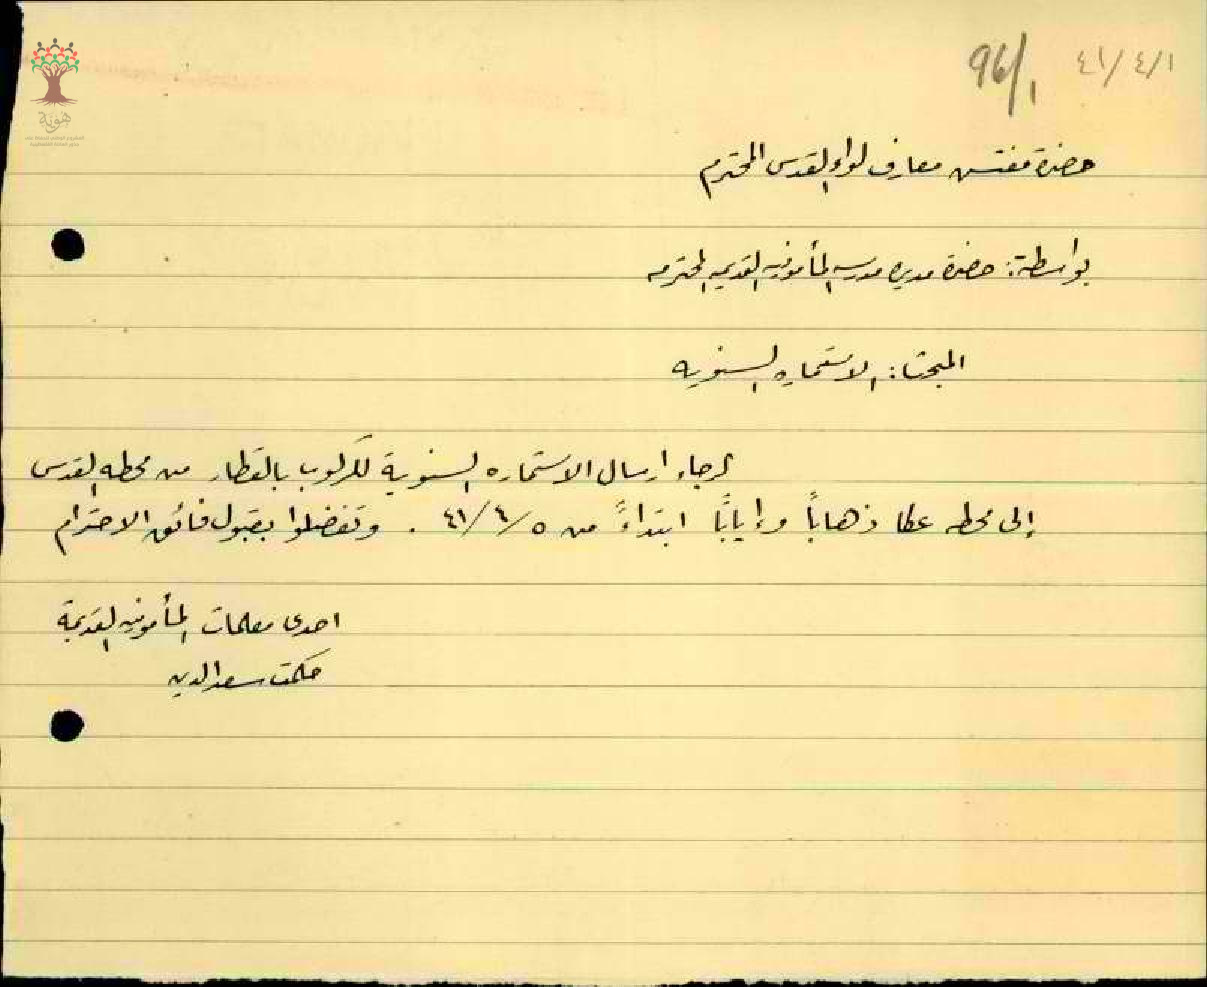 ٤١/٤/١
96/1
حضرة مفتش معارف لواء القدس المحترم
بواسطة: حضرة مديره مدرسه المأمونيه القديمه المحترمه
المبحث: الاستماره السنويه
الرجاء ارسال الاستماره السنوية للركوب بالقطار من محطه القدس
إلى محطه عكا ذهاباً وإياباً ابتداءً من ٤١/٤/٥ . وتفضلوا بقبول فائق الاحترام
احدى معلمات المأمونيه القديمة
حكمت سعد الدين
هوية